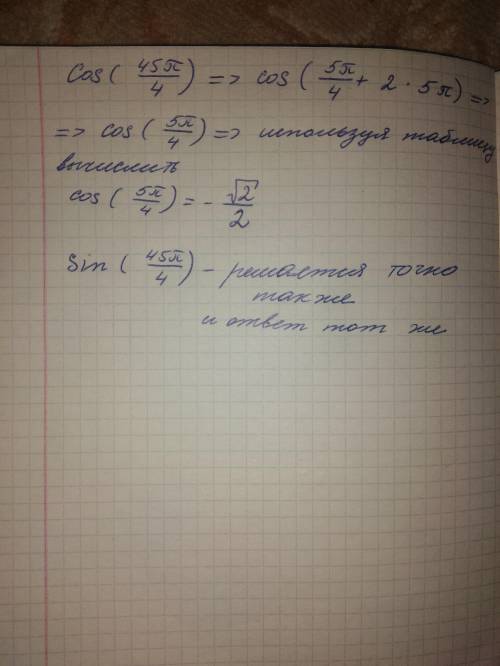 Cos( 45π/4 ) => cos( 5π/4 + 2 · 5π) =>
=> cos( 5π/4 ) => используя таблицу
вычислить
cos( 5π/4 ) = - √2/2
Sin( 45π/4 ) - решается точно
так же
и ответ тот же